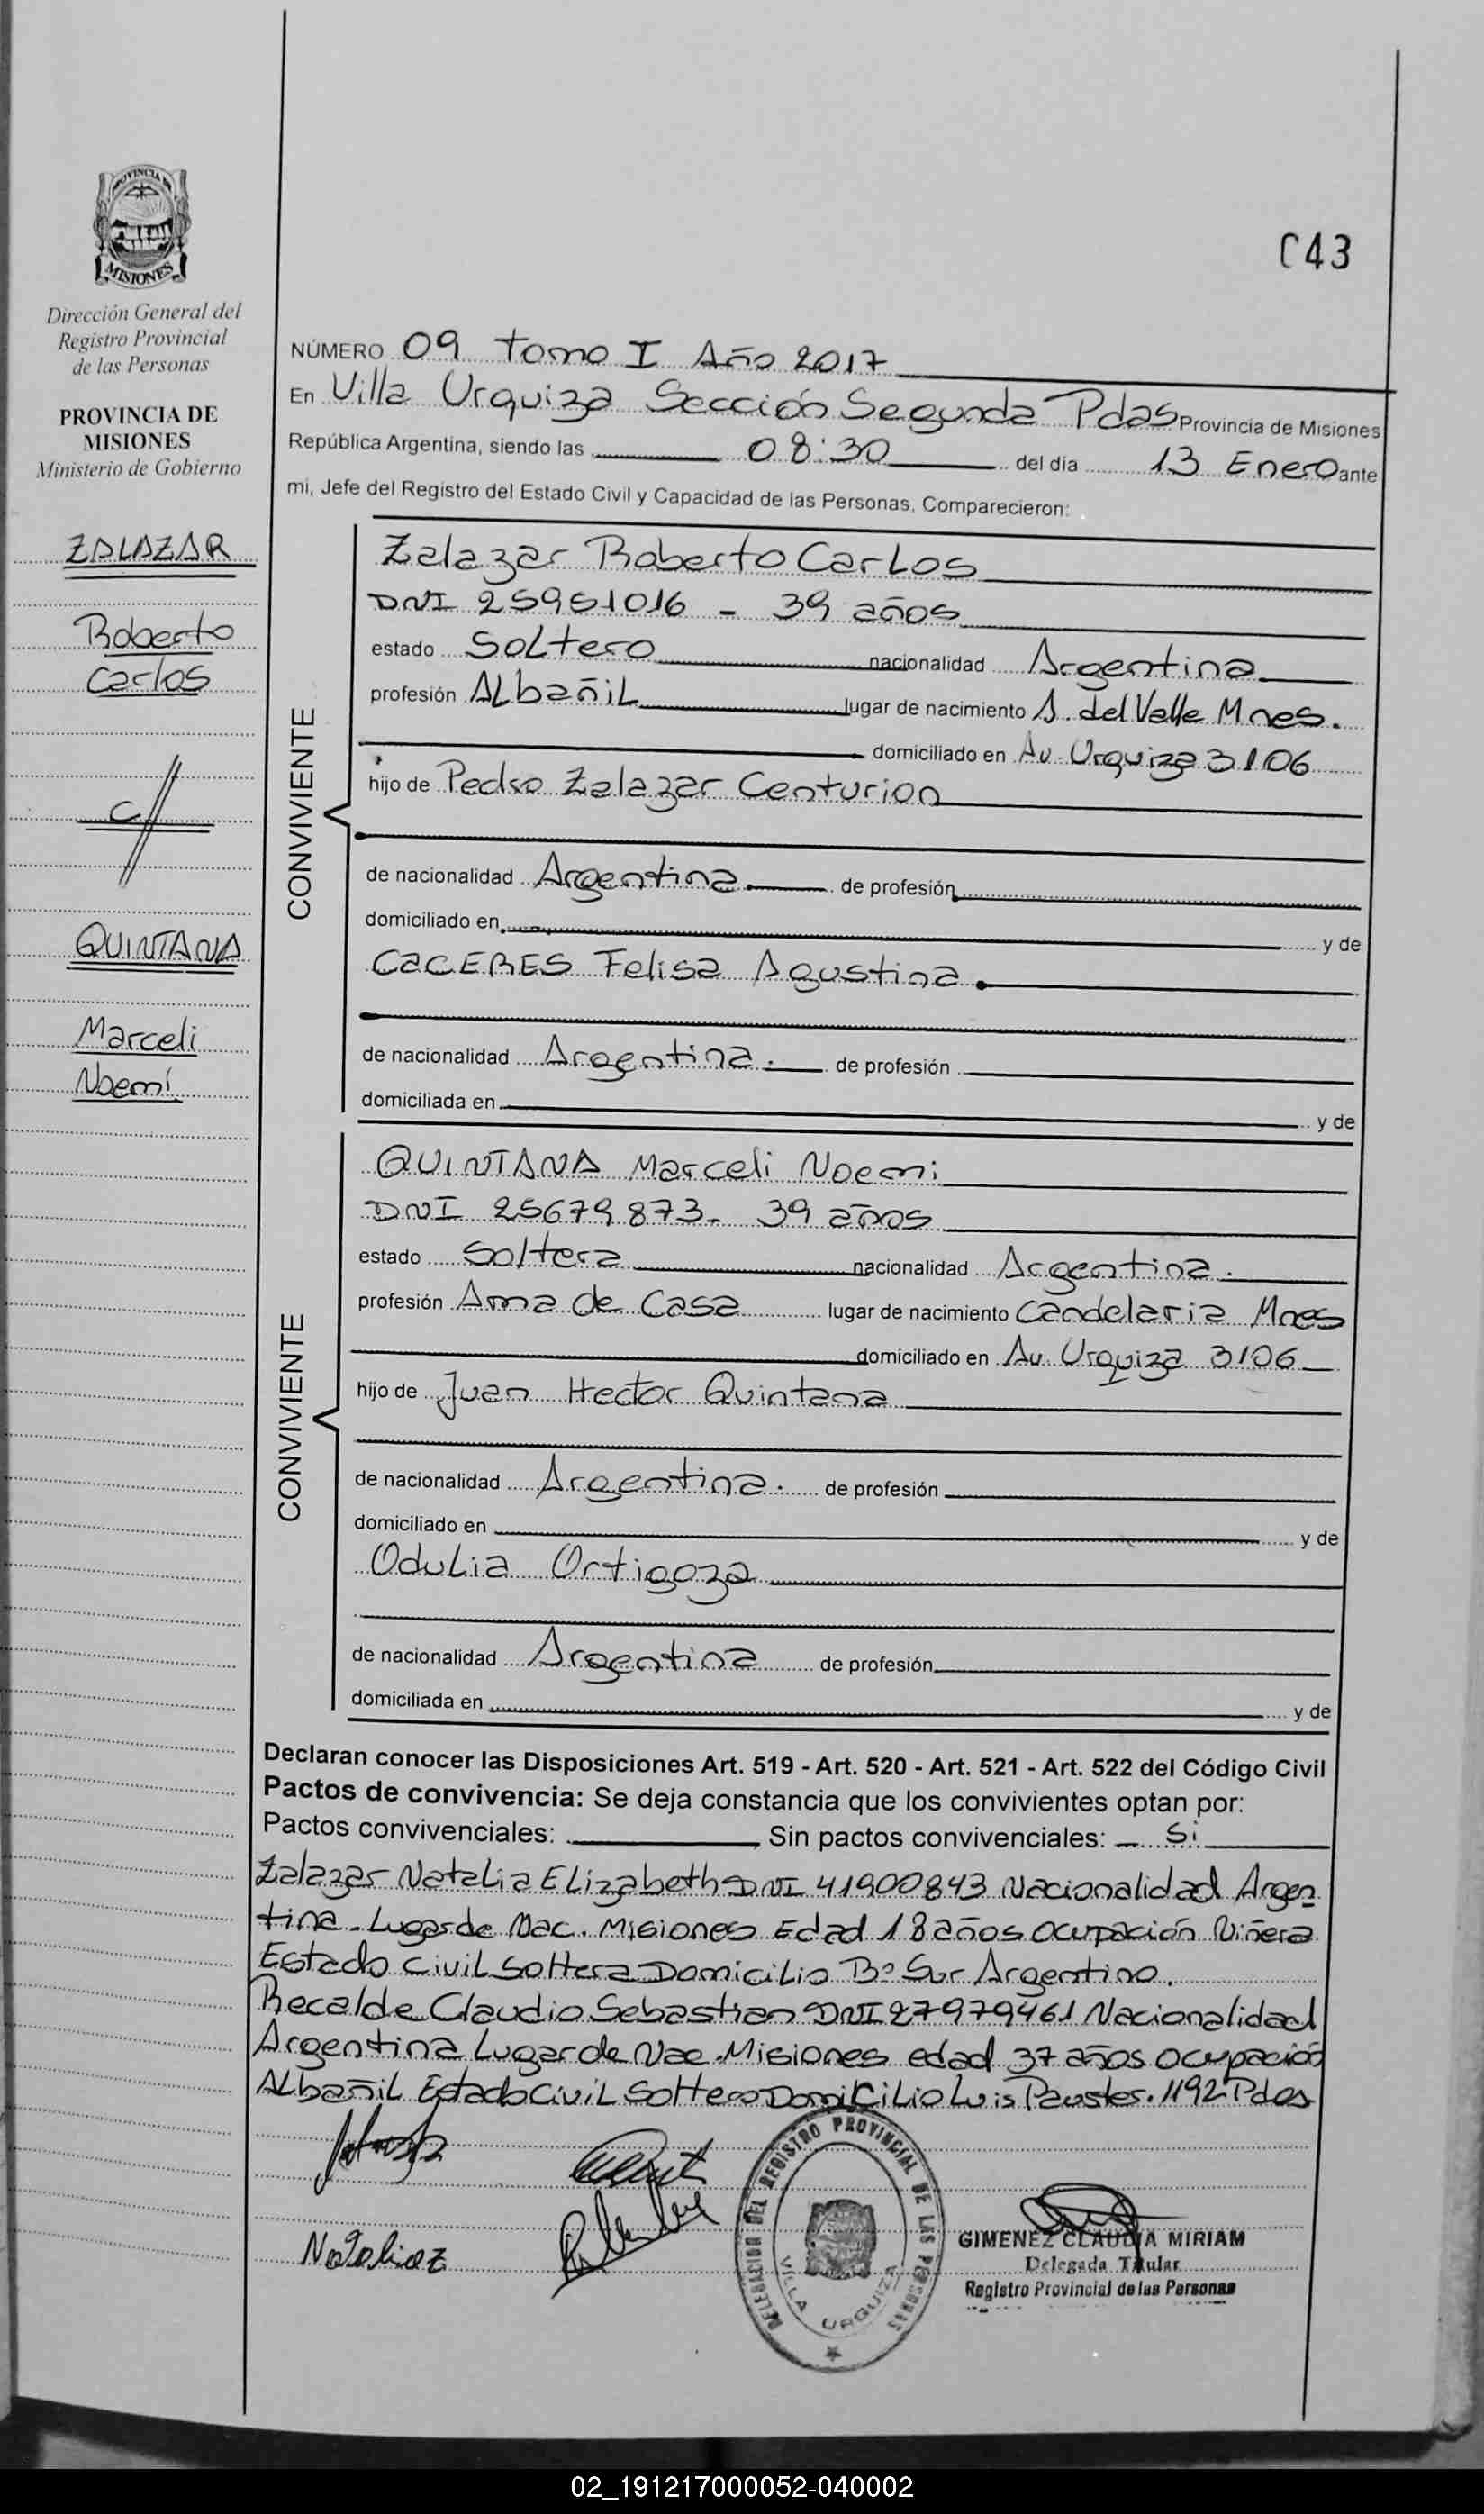 PROVINCIA DE
MISIONES
Dirección General del
Registro Provincial
de las Personas
PROVINCIA DE
MISIONES
Ministerio de Gobierno
ZALAZAR
Roberto
Carlos
C/
QUINTANA
Marceli
Noemí
C43
NÚMERO 09 Tomo I Año 2017
En Villa Urquiza Sección Segunda Pdas Provincia de Misiones
República Argentina, siendo las 08:30 del día 13 Enero ante
mi, Jefe del Registro del Estado Civil y Capacidad de las Personas, Comparecieron:
CONVIVIENTE
Zalazar Roberto Carlos
DNI 25951016 - 39 años
estado Soltero nacionalidad Argentina
profesión Albañil lugar de nacimiento A. del Valle Mnes.
domiciliado en Av. Urquiza 3106
hijo de Pedro Zalazar Centurion
de nacionalidad Argentina de profesión
domiciliado en y de
CACERES Felisa Agustina.
de nacionalidad Argentina. de profesión
domiciliada en y de
CONVIVIENTE
QUINTANA Marceli Noemi
DNI 25679873- 39 años
estado Soltera nacionalidad Argentina.
profesión Ama de Casa lugar de nacimiento Candelaria Mnes
domiciliado en Av. Urquiza 3106
hijo de Juan Hector Quintana
de nacionalidad Argentina. de profesión
domiciliado en y de
Odulia Ortigoza
de nacionalidad Argentina de profesión
domiciliada en y de
Declaran conocer las Disposiciones Art. 519 - Art. 520 - Art. 521 - Art. 522 del Código Civil
Pactos de convivencia: Se deja constancia que los convivientes optan por:
Pactos convivenciales: Sin pactos convivenciales: Si
Zalazar Natalia Elizabeth DNI 41900843 Nacionalidad Argen
tina - Lugar de Nac. Misiones Edad 18 años Ocupación Niñera
Estado Civil Soltera Domicilio Bº Sur Argentino.
Recalde Claudio Sebastian DNI 27979461 Nacionalidad
Argentina Lugar de Nac. Misiones edad 37 años Ocupación
Albañil Estado Civil Soltero Domicilio Luis Pauster. 1192 Pdas
Natalia Z
DELEGACION DEL REGISTRO PROVINCIAL DE LAS PERSONAS
VILLA URQUIZA
GIMENEZ CLAUDIA MIRIAM
Delegada Titular
Registro Provincial de las Personas
02_191217000052-040002